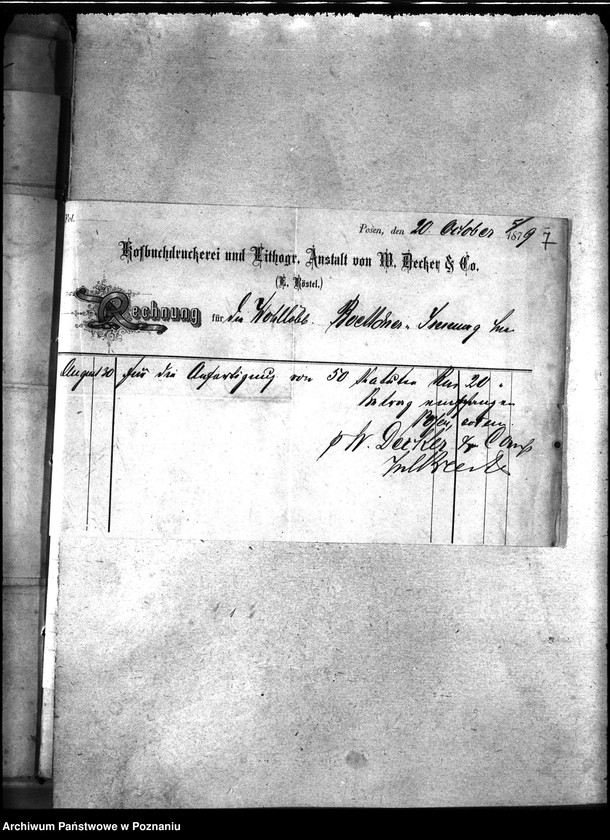 Fol.
Posen, den 20 October 1879
7
Hofbuchdruckerei und Lithogr. Anstalt von W. Decker & Co.
(E. Röstel.)
Rechnung für die Wohllöbl. Boettcher-Innung hier
August 30 für die Anfertigung von 50 Statuten Mk 20
Betrag empfangen
Posen
W. Decker & Comp
Archiwum Państwowe w Poznaniu